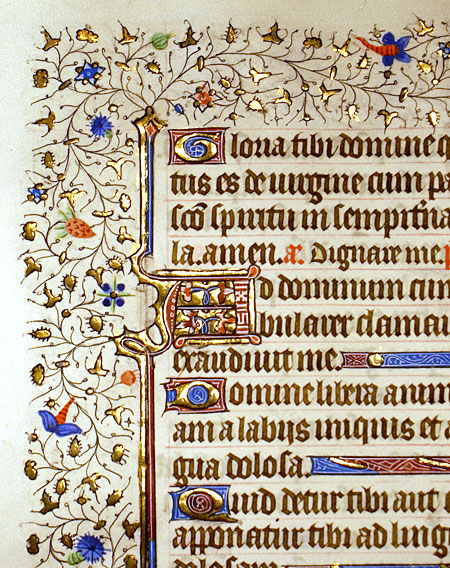 Gloria tibi domine q
tus es de uirgine cum pa
sco spiritu in sempitna
la. amen. Dignare me.
Ad dominum cum
bularer clamaui
exaudiuit me.
Domine libera anim
am a labijs iniquis et a
gua dolosa.
Quid detur tibi aut
apponatur tibi ad ling
dolosam